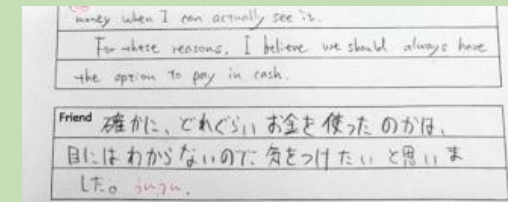 money when I can actually see it.
For these reasons, I believe we should always have
the option to pay in cash.
Friend 確かに、どれぐらいお金を使ったのかは、
目にはわからないので、気をつけたいと思いま
した。